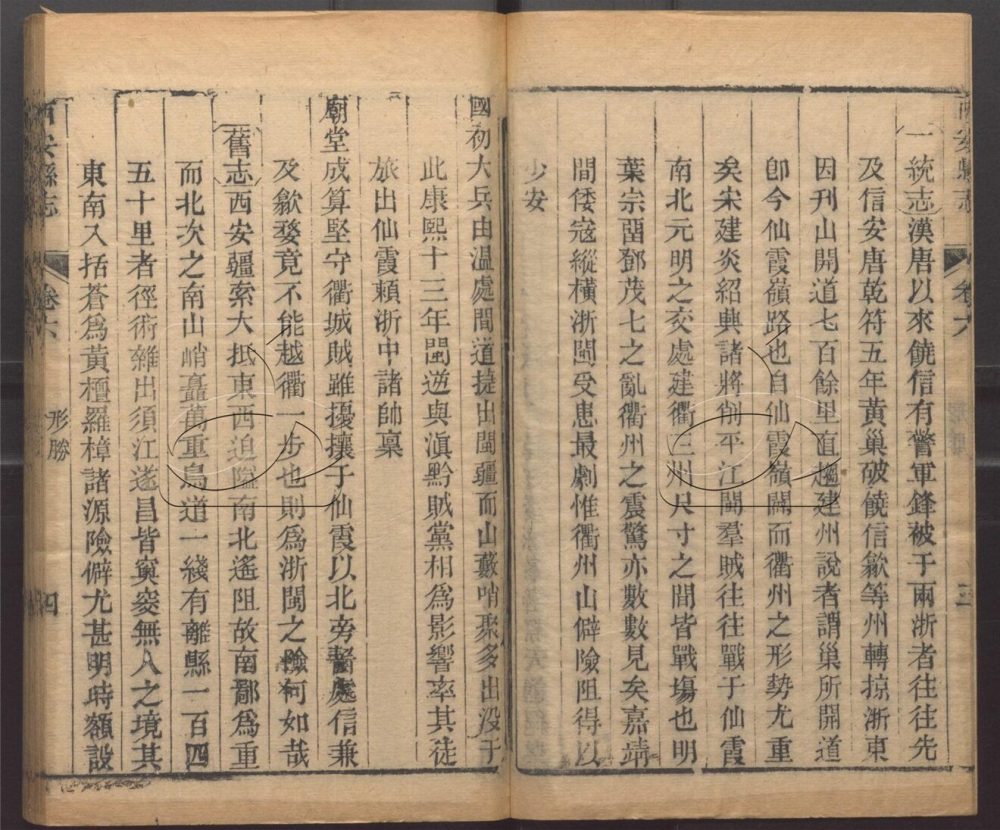 西安縣志
卷六
三
一統志漢唐以來饒信有警軍鋒被于兩浙者往往先
及信安唐乾符五年黃巢破饒信歙等州轉掠浙東
因刋山開道七百餘里直趨建州說者謂巢所開道
卽今仙霞嶺路也自仙霞嶺闢而衢州之形勢尤重
矣宋建炎紹興諸將削平江閩羣賊往往戰于仙霞
南北元明之交處建衢三州尺寸之間皆戰塲也明
葉宗畱鄧茂七之亂衢州之震驚亦數數見矣嘉靖
間倭宼縱橫浙閩受患最劇惟衢州山僻險阻得以
少安
國初大兵由溫處間道㨗出閩疆而山藪哨聚多出没于
此康熙十三年閩逆與滇黔賊黨相為影響率其徒
旅出仙霞賴浙中諸帥禀
廟堂成算堅守衢城賊雖擾攘于仙霞以北旁督處信兼
及歙婺竟不能越衢一步也則為浙閩之險何如哉
舊志西安疆索大抵東西迫隘南北遙阻故南鄙為重
而北次之南山峭矗萬重鳥道一綫有離縣一百四
五十里者徑術雜出須江遂昌皆窅窔無人之境其
東南入括蒼為黃檀羅樟諸源險僻尤甚明時額設
西安縣志
卷六
形勝
四